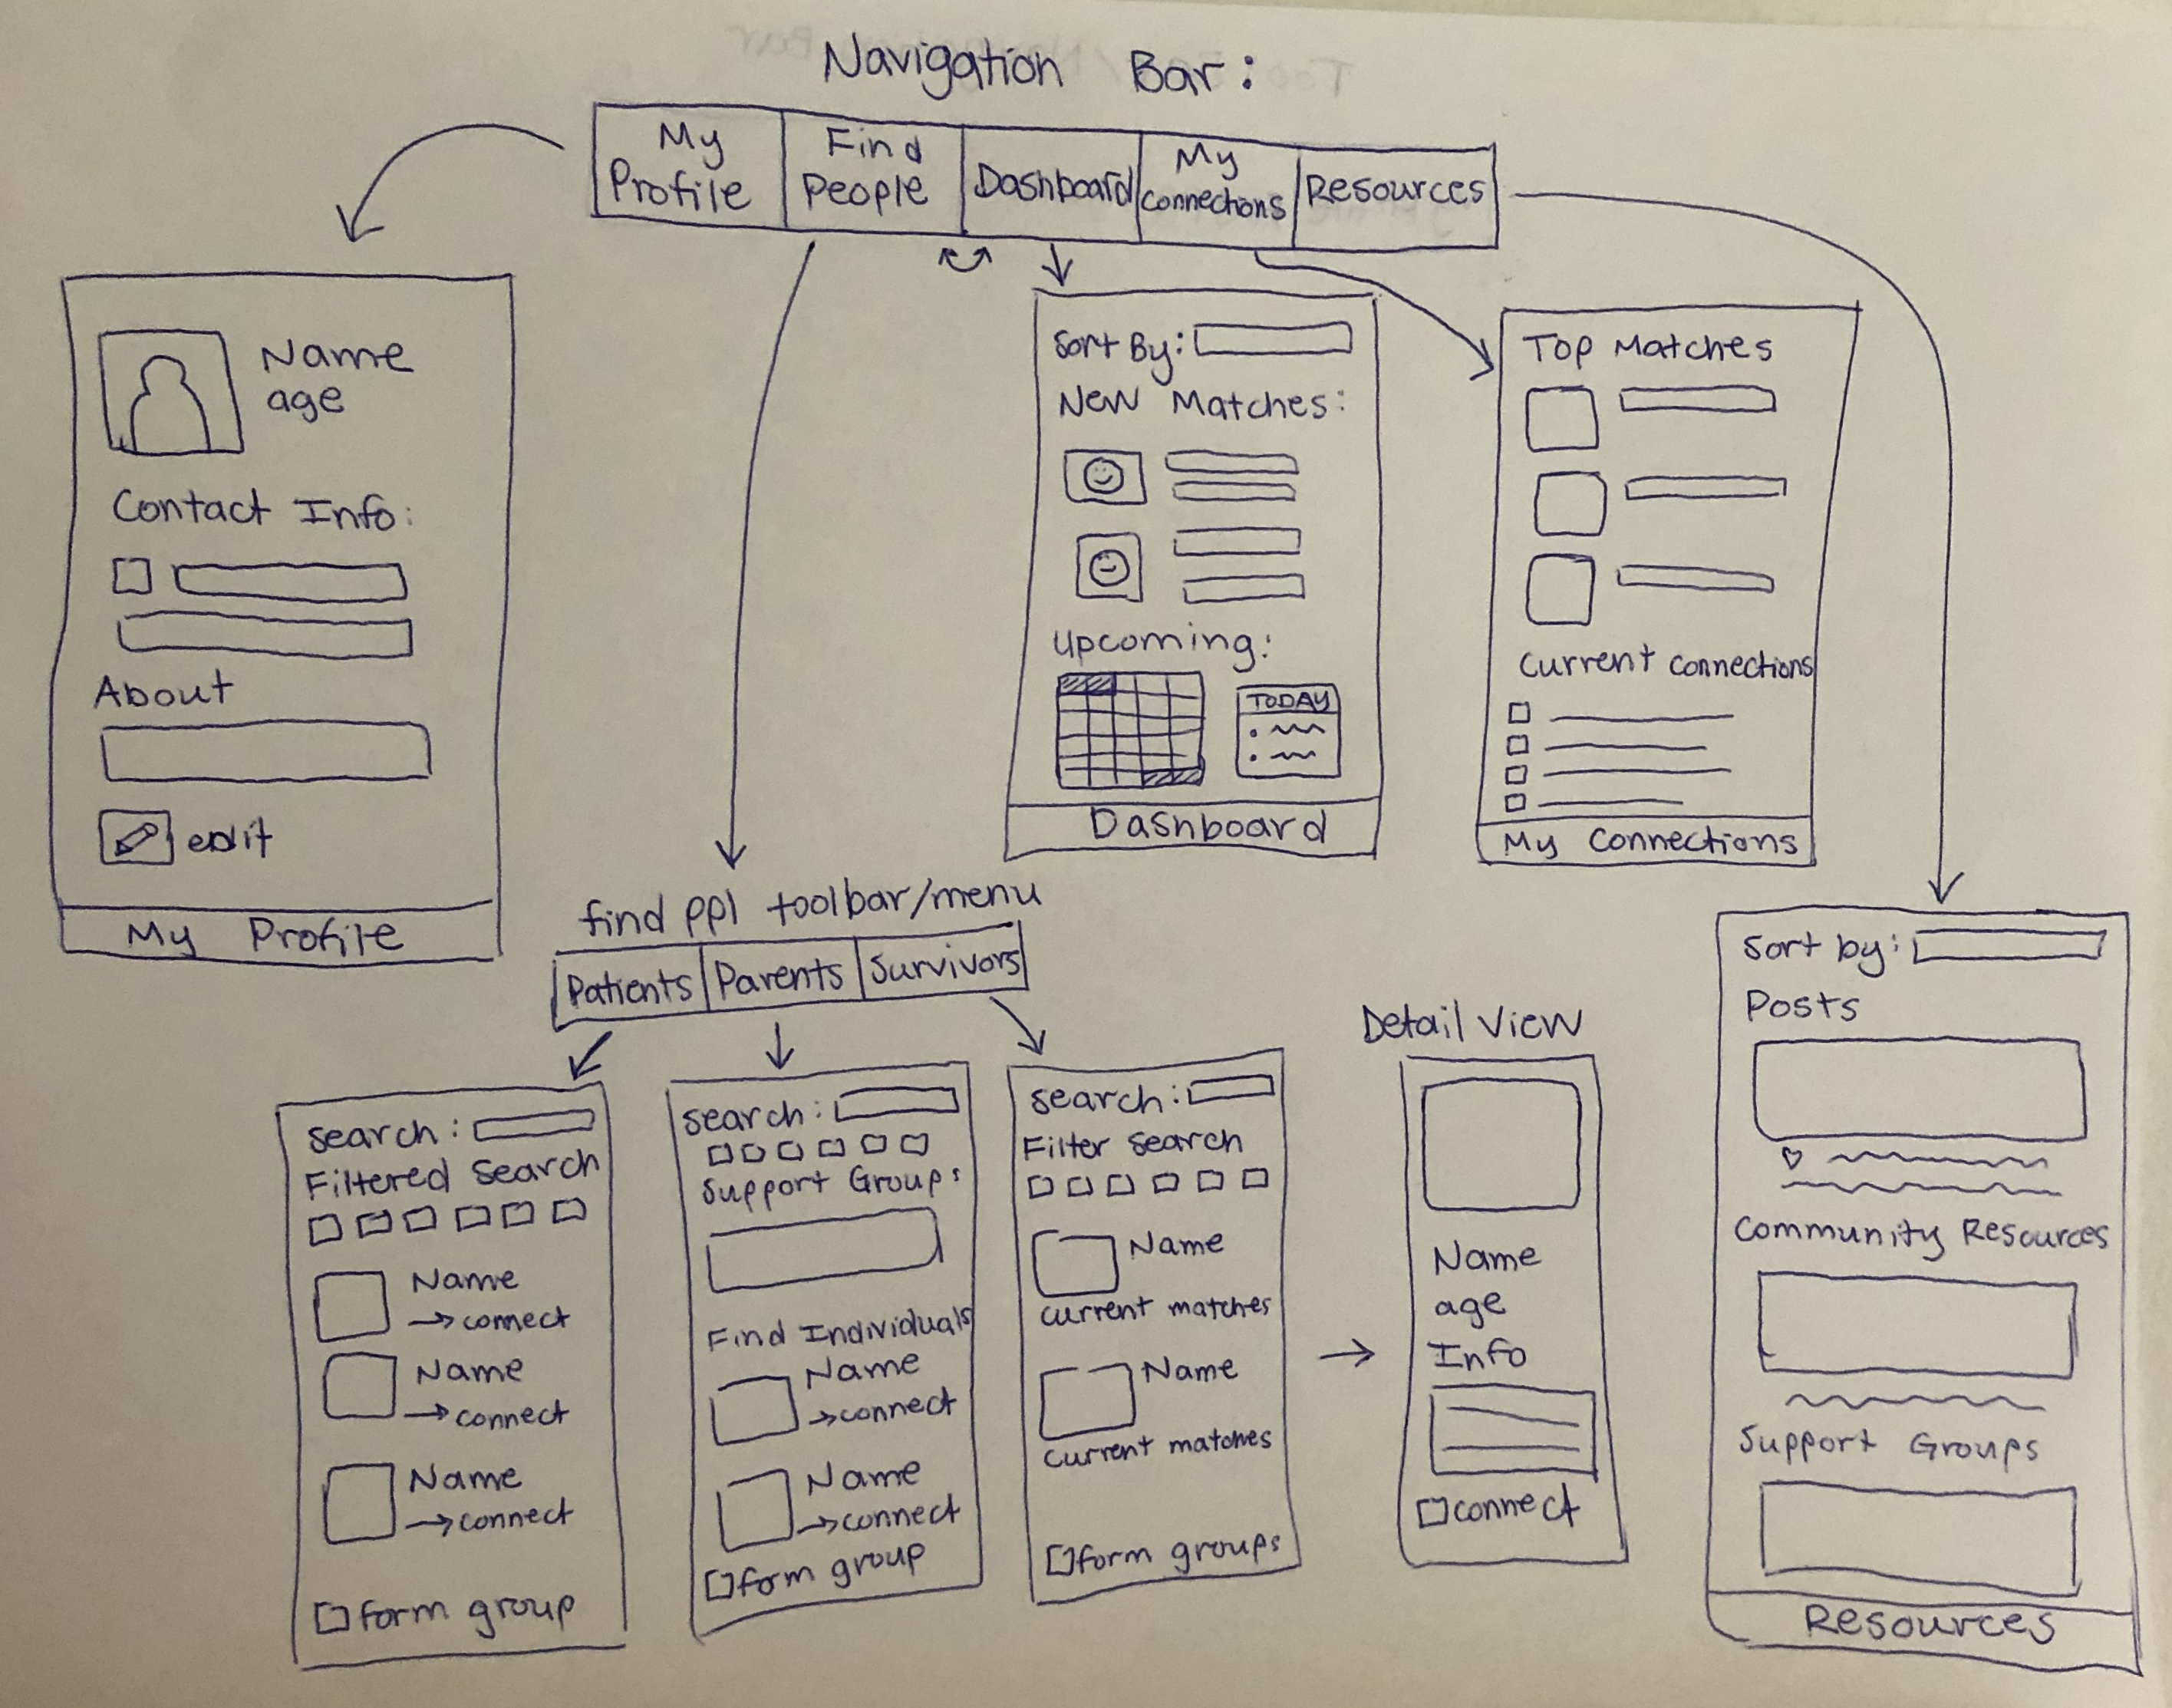 Navigation Bar:
My Profile
Find People
Dashboard
My Connections
Resources
Name
age
Contact Info:
About
edit
My Profile
Sort By:
New Matches:
Upcoming:
TODAY
Dashboard
Top Matches
Current Connections
My Connections
find ppl toolbar/menu
Patients
Parents
Survivors
search:
Filtered Search
Name
→connect
Name
→connect
Name
→connect
form group
search:
Support Groups
Find Individuals
Name
→connect
Name
→connect
form group
search:
Filter Search
Name
current matches
Name
current matches
form groups
Detail View
Name
age
Info
connect
Sort by:
Posts
Community Resources
Support Groups
Resources